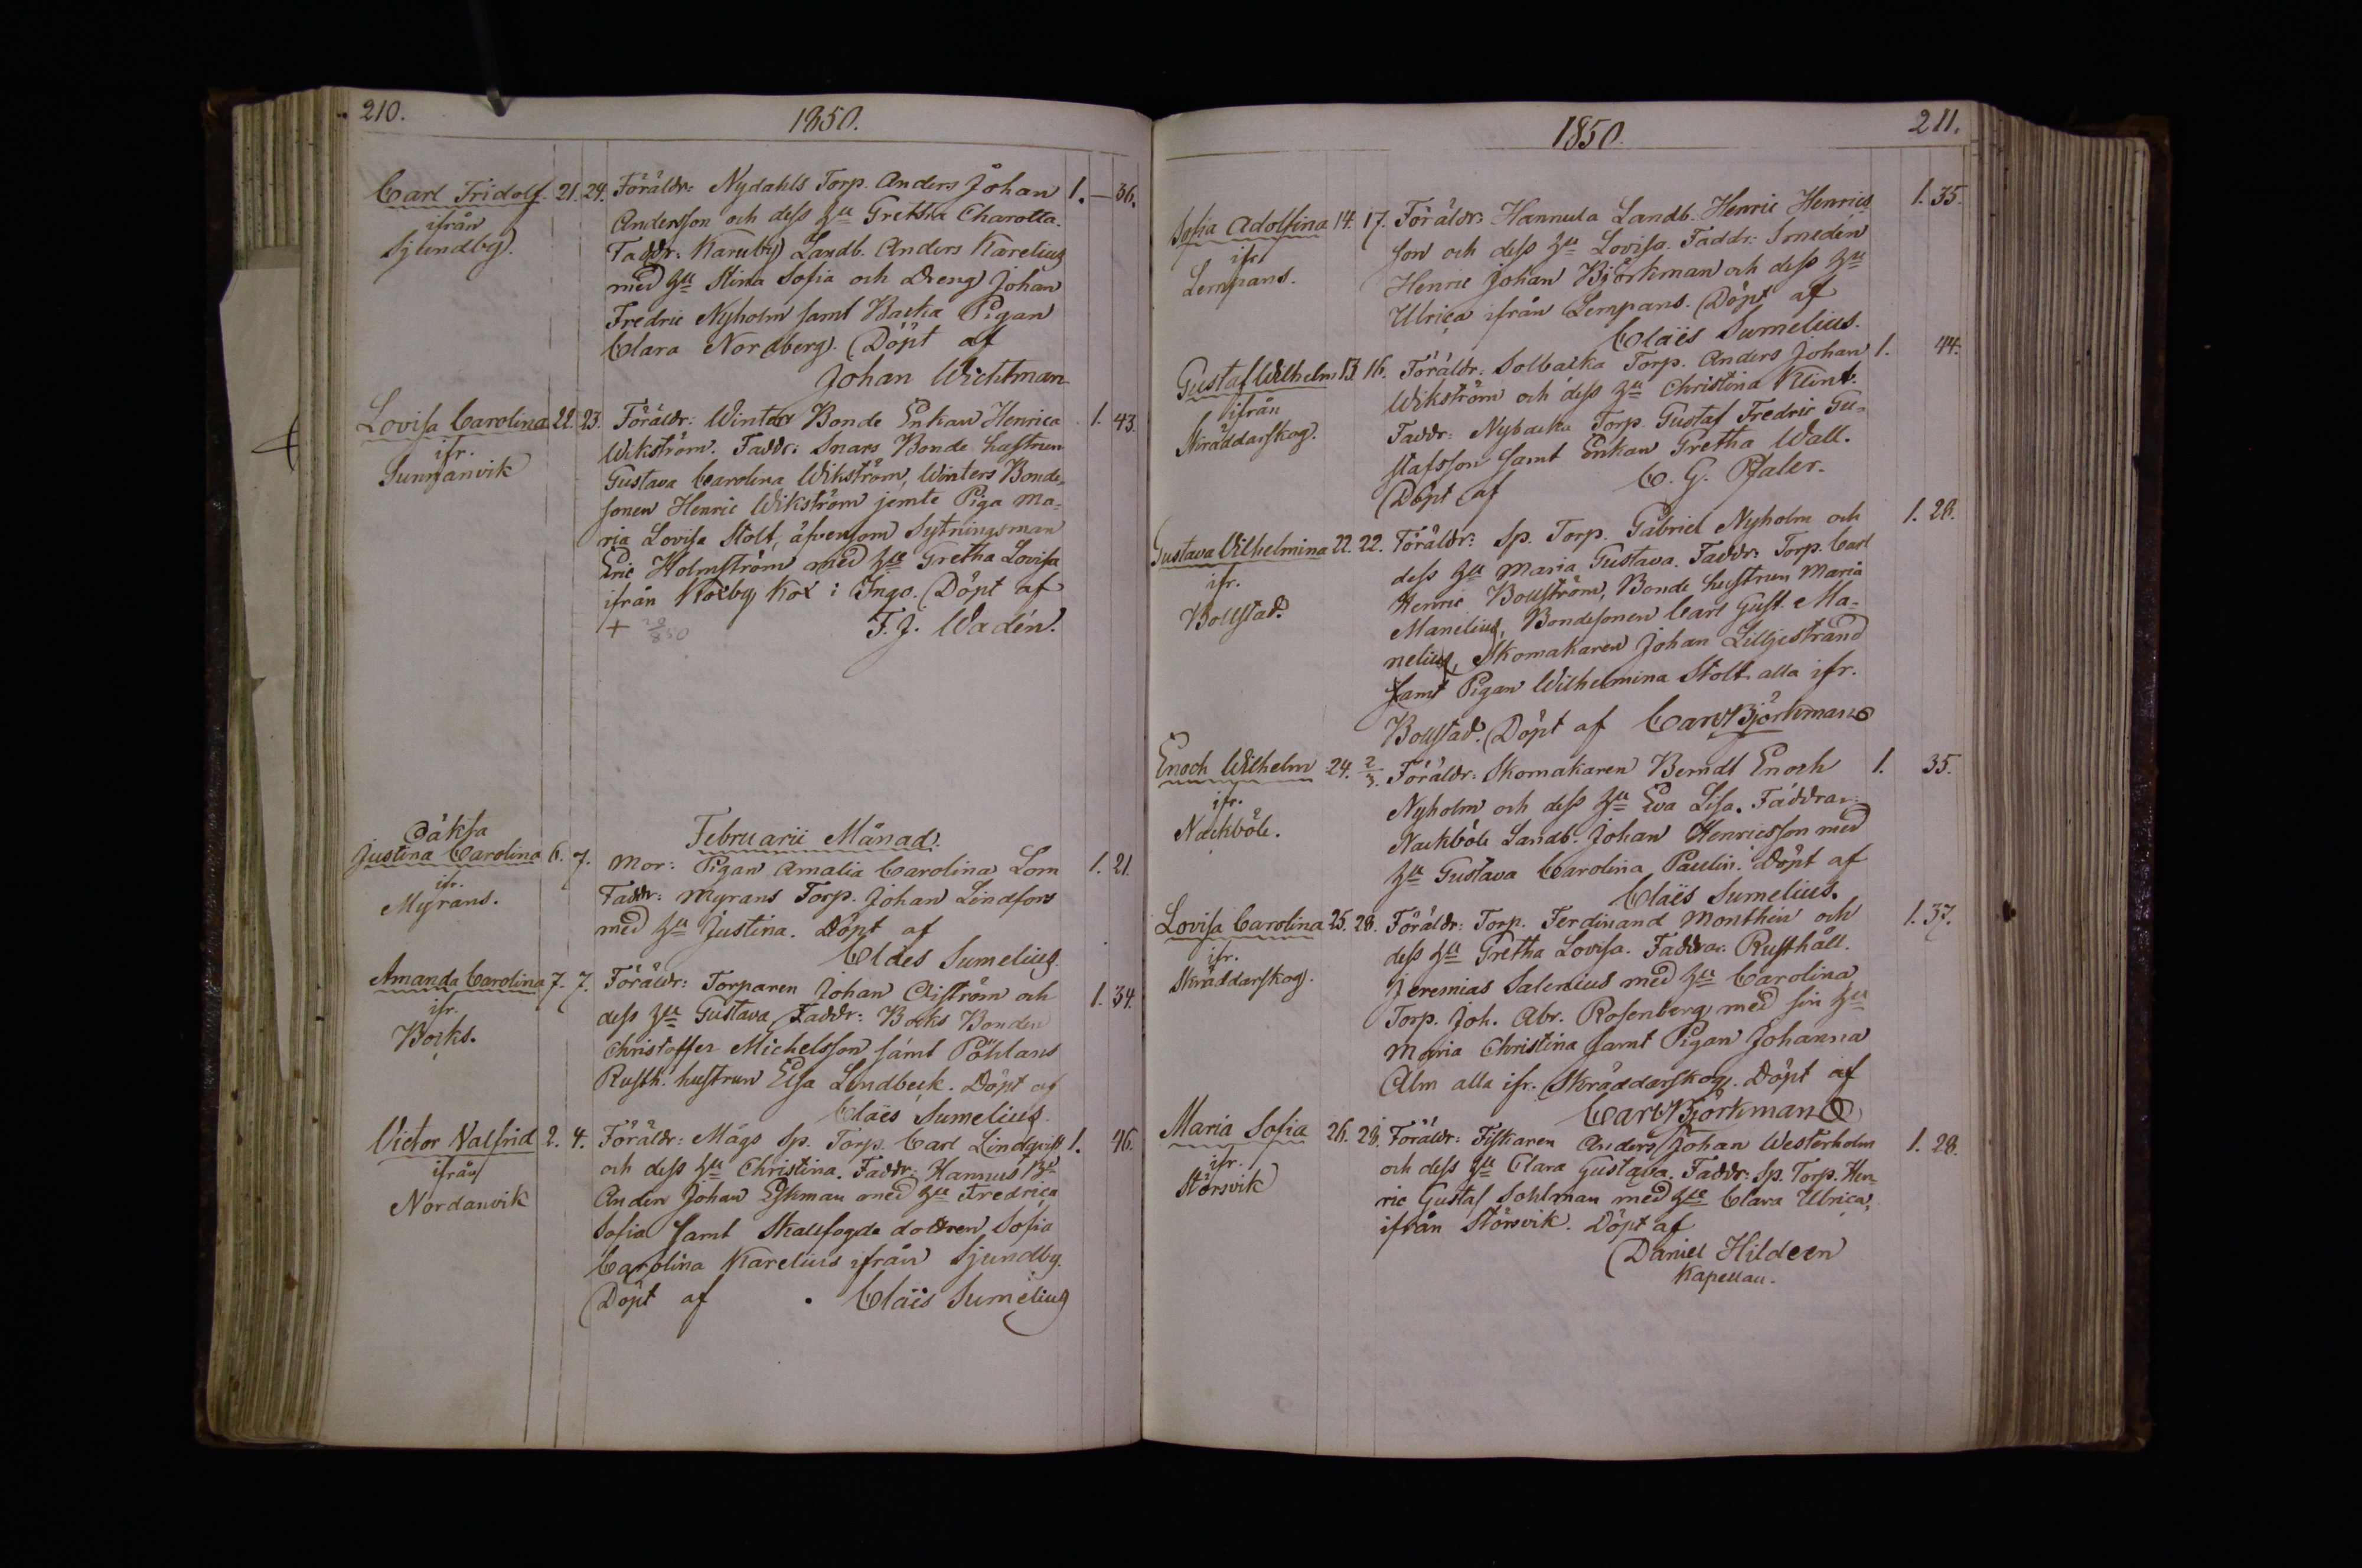 210.
1850.
Carl Fridolf. 21. 24. Föräldr: Nydahls Torp. Anders Johan 1. — 36.
ifrån
Andersson och dess Hu Gretha Charotta.
Sjundby.
Faddr: Karuby Landb. Anders Karelius
med Hu Stina Sofia och Dreng Johan
Fredric Nyholm samt Backa Pigan
Clara Nordberg. Döpt af
Johan Wichtman
Lovisa Carolina 22. 23. Föräldr: Winters Bonde Enkan Henrica 1. 43.
ifr.
Wikström. Faddr: Snars Bonde hustrun
Sunnanvik
Gustava Carolina Wikström, Winters Bonde-
sonen Henric Wikström jemte Piga Ma-
ria Lovisa Stolt, äfvensom Sytningsman
Eric Holmström med Hu Gretha Lovisa
ifrån Kocby i Ingo. Döpt af
+ 29/8 50
F. J. Wadén.
Februarii Månad.
Oäkta
Justina Carolina 6. 7. Mor: Pigan Amalia Carolina Lom 1. 21.
ifr.
Faddr: Myrans Torp. Johan Lindfors
Myrans.
med Hu Justina. Döpt af
Claes Sumelius.
Amanda Carolina 7. 7. Föräldr: Torparen Johan Öiström och 1. 34.
ifr.
dess Hu Gustava Faddr: Bocks Bonden
Bocks.
Christoffer Michelsson samt Pöhlans
Rusth. hustrun Elsa Lindbeck. Döpt af
Claës Sumelius.
Victor Valfrid 2. 4. Föräldr: Mågs Sp. Torp. Carl Lindqvist 1. 26.
ifrån
och dess Hu Christina. Faddr: Hannus
Nordanvik
Anders Johan Eskman med Hu Fredrica
Sofia samt Skallfogde dottren Sofia
Carolina Karelius ifrån Sjundby.
Döpt af Claës Sumelius
1850.
211.
Sofia Adolfina 14. 17. Föräldr: Hannula Landb. Henric Henrics 1. 35.
ifr.
son och dess Hu Lovisa. Faddr: Smeden
Lempans.
Henric Johan Björkman och dess Hu
Ulrica ifrån Lempans. Döpt af
Claës Sumelius.
Gustaf Wilhelm 13. 16. Föräldr: Solbacka Torp. Anders Johan 1. 44.
ifrån
Wikström och dess Hu Christina Klint.
Skräddarskog.
Faddr: Nybacka Torp. Gustaf Fredric Gu-
stafsson samt Enkan Gretha Wall.
Döpt af C. G. Pfaler.
Gustava Vilhelmina 22. 22. Föräldr: Sp. Torp. Gabriel Nyholm och 1. 28.
ifr.
dess Hu Maria Gustava. Faddr: Torp. Carl
Bollstad.
Henric Bollström, Bonde hustrun Maria
Manelius, Bondesonen Carl Gust. Ma-
nelius, Skomakaren Johan Lilljestrand
samt Pigan Wilhelmina Stolt, alla ifr.
Bollstad. Döpt af Carl Björkman
Enoch Wilhelm 24. 2/3. Föräldr: Skomakaren Berndt Enoch 1. 35.
ifr.
Nyholm och dess Hu Eva Lisa. Faddrar:
Nackböle.
Nackböle Landb. Johan Henricsson med
Hu Gustava Carolina Paulin. Döpt af
Claës Sumelius.
Lovisa Carolina 25. 28. Föräldr: Torp. Ferdinand Monthein och 1. 37.
ifr.
dess Hu Gretha Lovisa. Faddrar: Rusthåll.
Skräddarskog.
Jeremias Salenius med Hu Carolina,
Torp. Joh. Abr. Rosenberg med sin Hu
Maria Christina samt Pigan Johanna
Alm alla ifr. Skräddarskog. Döpt af
Carl Björkman
Maria Sofia 26. 28. Föräldr: Fiskaren Anders Johan Westerholm 1. 28.
ifr.
och dess Hu Clara Gustava. Faddr: Sp. Torp. Hen-
Störsvik
ric Gustaf Sohlman med Hu Clara Ulrica,
ifrån Störsvik. Döpt af
Daniel Hildeen
Kapellan.